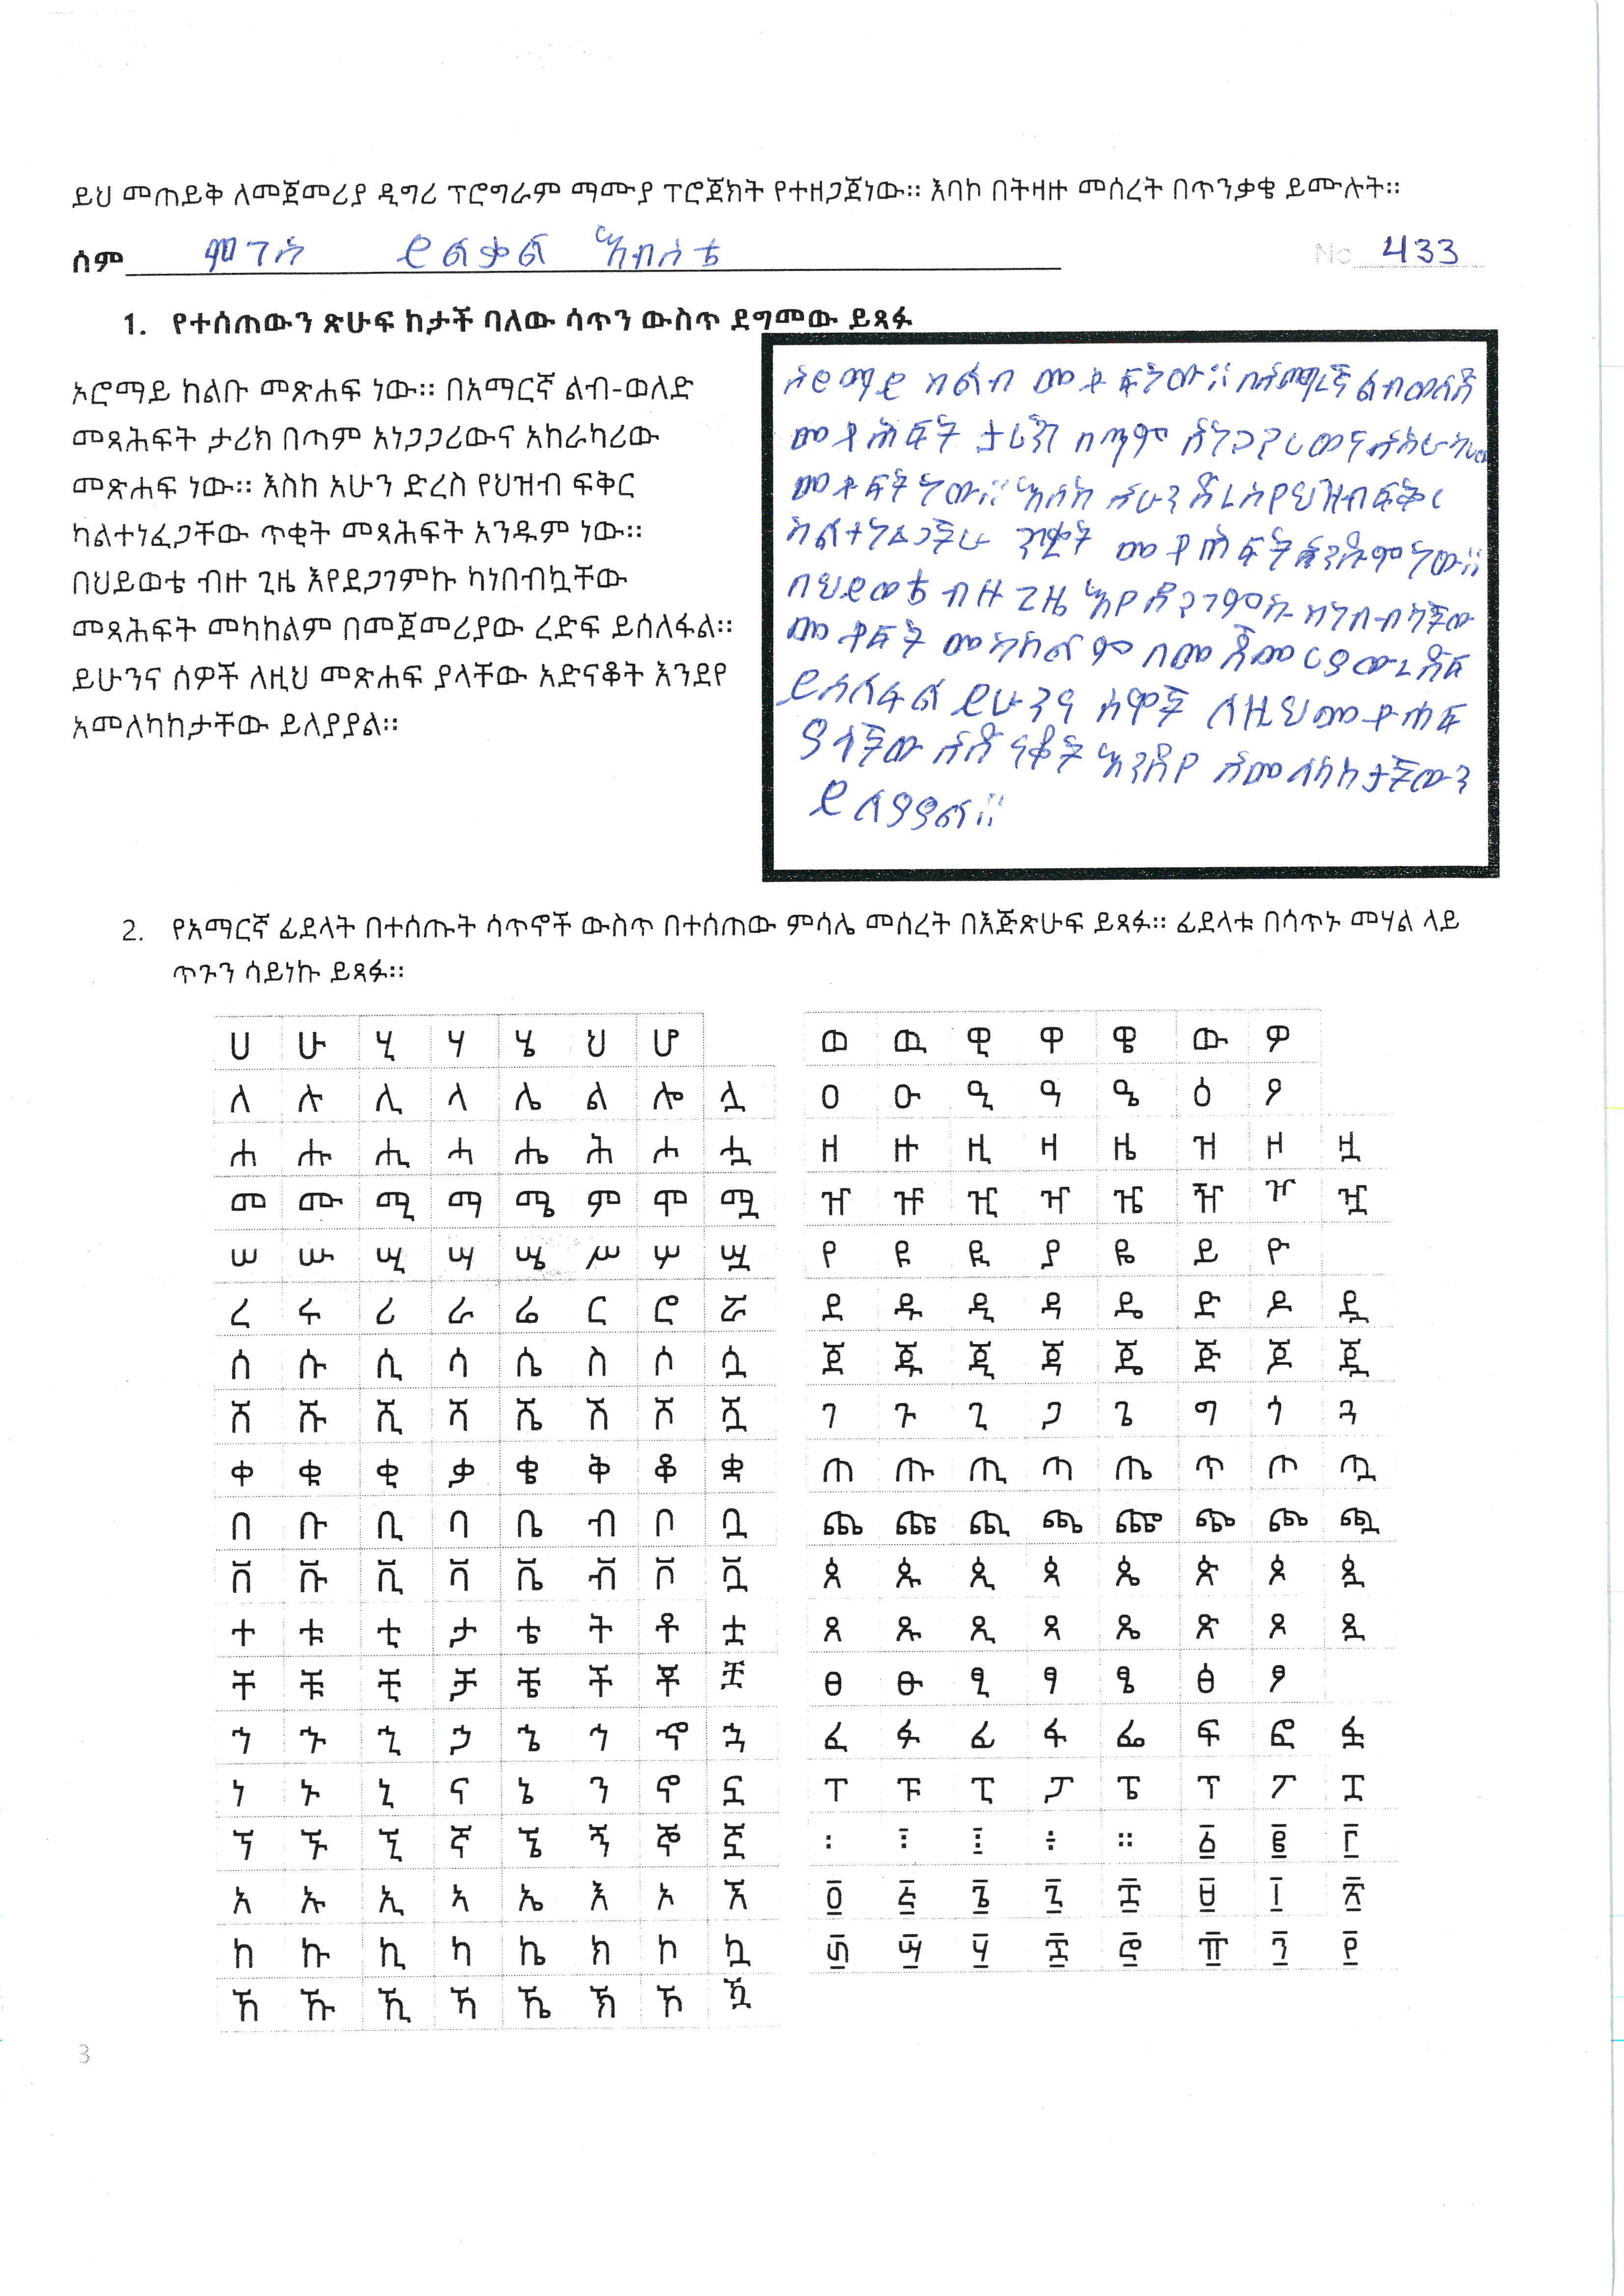 ይህ መጠይቅ ለመጀመሪያ ዲግሪ ፕሮግራም ማሙያ ፕሮጀክት የተዘጋጀነው። እባኮ በትዛዙ መሰረት በጥንቃቄ ይሙሉት።
ስም ሞገስ ይልቃል እብስቴ No 433
1. የተሰጠውን ጽሁፍ ከታች ባለው ሳጥን ውስጥ ደግመው ይጻፉ
ኦሮማይ ከልቡ መጽሐፍ ነው። በአማርኛ ልብ-ወለድ
መጻሕፍት ታሪክ በጣም አነጋጋሪውና አከራካሪው
መጽሐፍ ነው። እስከ አሁን ድረስ የህዝብ ፍቅር
ካልተነፈጋቸው ጥቂት መጻሕፍት አንዱም ነው።
በህይወቴ ብዙ ጊዜ እየደጋገምኩ ካነበብኳቸው
መጻሕፍት መካከልም በመጀመሪያው ረድፍ ይሰለፋል።
ይሁንና ሰዎች ለዚህ መጽሐፍ ያላቸው አድናቆት እንደየ
አመለካከታቸው ይለያያል።
ከልብ ነው። በአማረኛ ልብወለድ
ታሪክ በጣም
ነው። እስከ አሁን ድረስ የህዝብ ፍቅር
ነው።
በህይወቴ ብዙ ጊዜ እየደጋገምኩ
መካከልም በመጀመርያው ረዳፍ
ይሰለፋል ይሁንና ሰዋች ለዚህ
ያላቸው አድናቆት እንደየ አመለካከታቸውን
ይለያያል።
2. የአማርኛ ፊደላት በተሰጡት ሳጥኖች ውስጥ በተሰጠው ምሳሌ መሰረት በእጅጽሁፍ ይጻፉ። ፊደላቱ በሳጥኑ መሃል ላይ
ጥጉን ሳይነኩ ይጻፉ።
ሀ ሁ ሂ ሃ ሄ ህ ሆ
ለ ሉ ሊ ላ ሌ ል ሎ ሏ
ሐ ሑ ሒ ሓ ሔ ሕ ሖ ሗ
መ ሙ ሚ ማ ሜ ም ሞ ሟ
ሠ ሡ ሢ ሣ ሤ ሥ ሦ ሧ
ረ ሩ ሪ ራ ሬ ር ሮ ሯ
ሰ ሱ ሲ ሳ ሴ ስ ሶ ሷ
ሸ ሹ ሺ ሻ ሼ ሽ ሾ ሿ
ቀ ቁ ቂ ቃ ቄ ቅ ቆ ቋ
በ ቡ ቢ ባ ቤ ብ ቦ ቧ
ቨ ቩ ቪ ቫ ቬ ቭ ቮ ቯ
ተ ቱ ቲ ታ ቴ ት ቶ ቷ
ቸ ቹ ቺ ቻ ቼ ች ቾ ቿ
ኀ ኁ ኂ ኃ ኄ ኅ ኆ ኋ
ነ ኑ ኒ ና ኔ ን ኖ ኗ
ኘ ኙ ኚ ኛ ኜ ኝ ኞ ኟ
አ ኡ ኢ ኣ ኤ እ ኦ ኧ
ከ ኩ ኪ ካ ኬ ክ ኮ ኳ
ኸ ኹ ኺ ኻ ኼ ኽ ኾ ዃ
ወ ዉ ዊ ዋ ዌ ው ዎ
ዐ ዑ ዒ ዓ ዔ ዕ ዖ
ዘ ዙ ዚ ዛ ዜ ዝ ዞ ዟ
ዠ ዡ ዢ ዣ ዤ ዥ ዦ ዧ
የ ዩ ዪ ያ ዬ ይ ዮ
ደ ዱ ዲ ዳ ዴ ድ ዶ ዷ
ጀ ጁ ጂ ጃ ጄ ጅ ጆ ጇ
ገ ጉ ጊ ጋ ጌ ግ ጎ ጓ
ጠ ጡ ጢ ጣ ጤ ጥ ጦ ጧ
ጨ ጩ ጪ ጫ ጬ ጭ ጮ ጯ
ጰ ጱ ጲ ጳ ጴ ጵ ጶ ጷ
ጸ ጹ ጺ ጻ ጼ ጽ ጾ ጿ
ፀ ፁ ፂ ፃ ፄ ፅ ፆ
ፈ ፉ ፊ ፋ ፌ ፍ ፎ ፏ
ፐ ፑ ፒ ፓ ፔ ፕ ፖ ፗ
፡ ፣ ፤ ፥ ። ፩ ፪ ፫
፬ ፭ ፮ ፯ ፰ ፱ ፲ ፳
፴ ፵ ፶ ፷ ፸ ፹ ፺ ፻
3